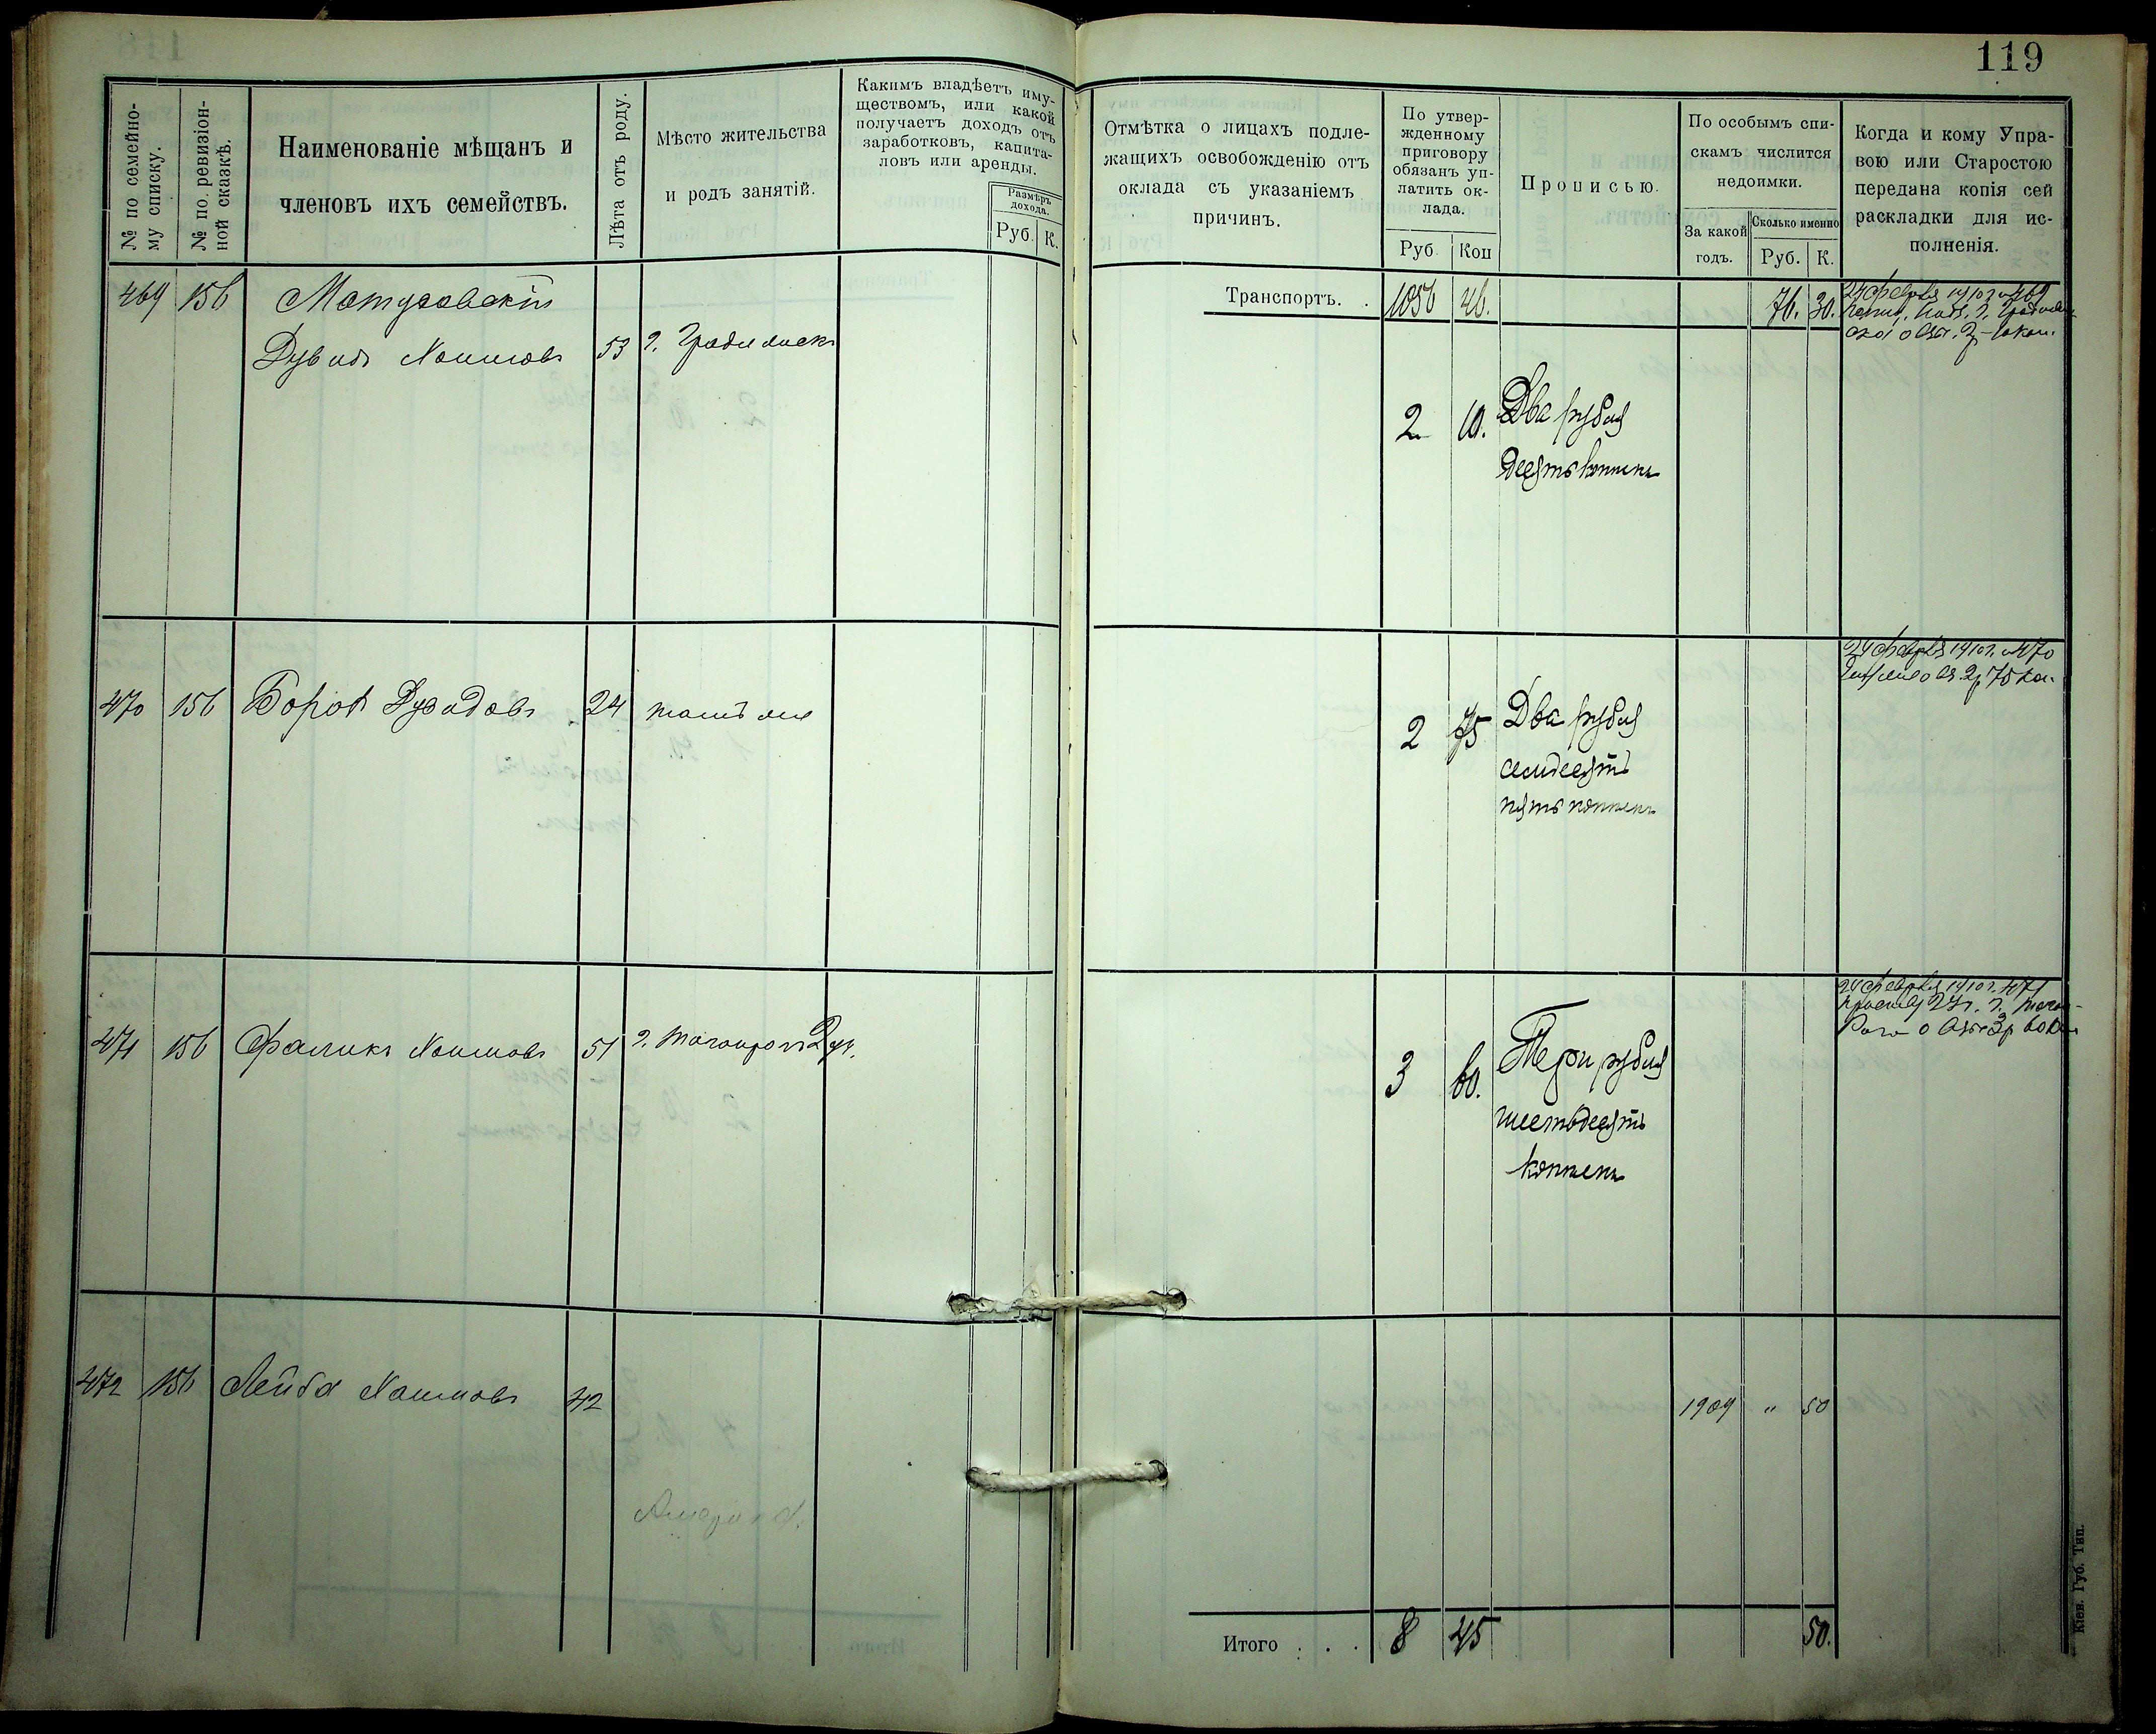 119
№ по семейно-
му списку.
№ по. ревизіон-
ной сказкѣ.
Наименованіе мѣщанъ и
членовъ ихъ семействъ.
Лѣта отъ роду.
Мѣсто жительства
и родъ занятій.
Какимъ владѣетъ иму-
ществомъ, или какой
получаетъ доходъ отъ
заработковъ, капита-
ловъ или аренды.
Размѣръ
дохода.
Руб. К.
Отмѣтка о лицахъ подле-
жащихъ освобожденію отъ
оклада съ указаніемъ
причинъ.
По утвер-
жденному
приговору
обязанъ уп-
латить ок-
лада.
Руб Коп
Прописью.
По особымъ спи-
скамъ числится
недоимки.
За какой
годъ.
Сколько именно
Руб. К.
Когда и кому Упра-
вою или Старостою
передана копія сей
раскладки для ис-
полненія.
Транспортъ. . 1056 46. 76. 30.
469 156 Матусовскій
Дувидъ Хаимовъ 53 г. Градижскъ
2 10. Два рубля
десять копѣекъ
24 февраля 1910 г. №469
470 156 Борох Дувидовъ 24 тамъ же
2 75 Два рубля
семьдесятъ
пять копѣекъ
24 февраля 1910 г. №470
2 р 75 коп.
471 156 Фаликъ Хаимовъ 51 г. Таганрогъ
3 60. Три рубля
шестьдесятъ
копѣекъ
24 февраля 1910 г. 471
472 156 Лейба Хаимовъ 42
1909 " 50
Америка.
Итого . . . 8 45 50.
Кіев. Губ. Тип.